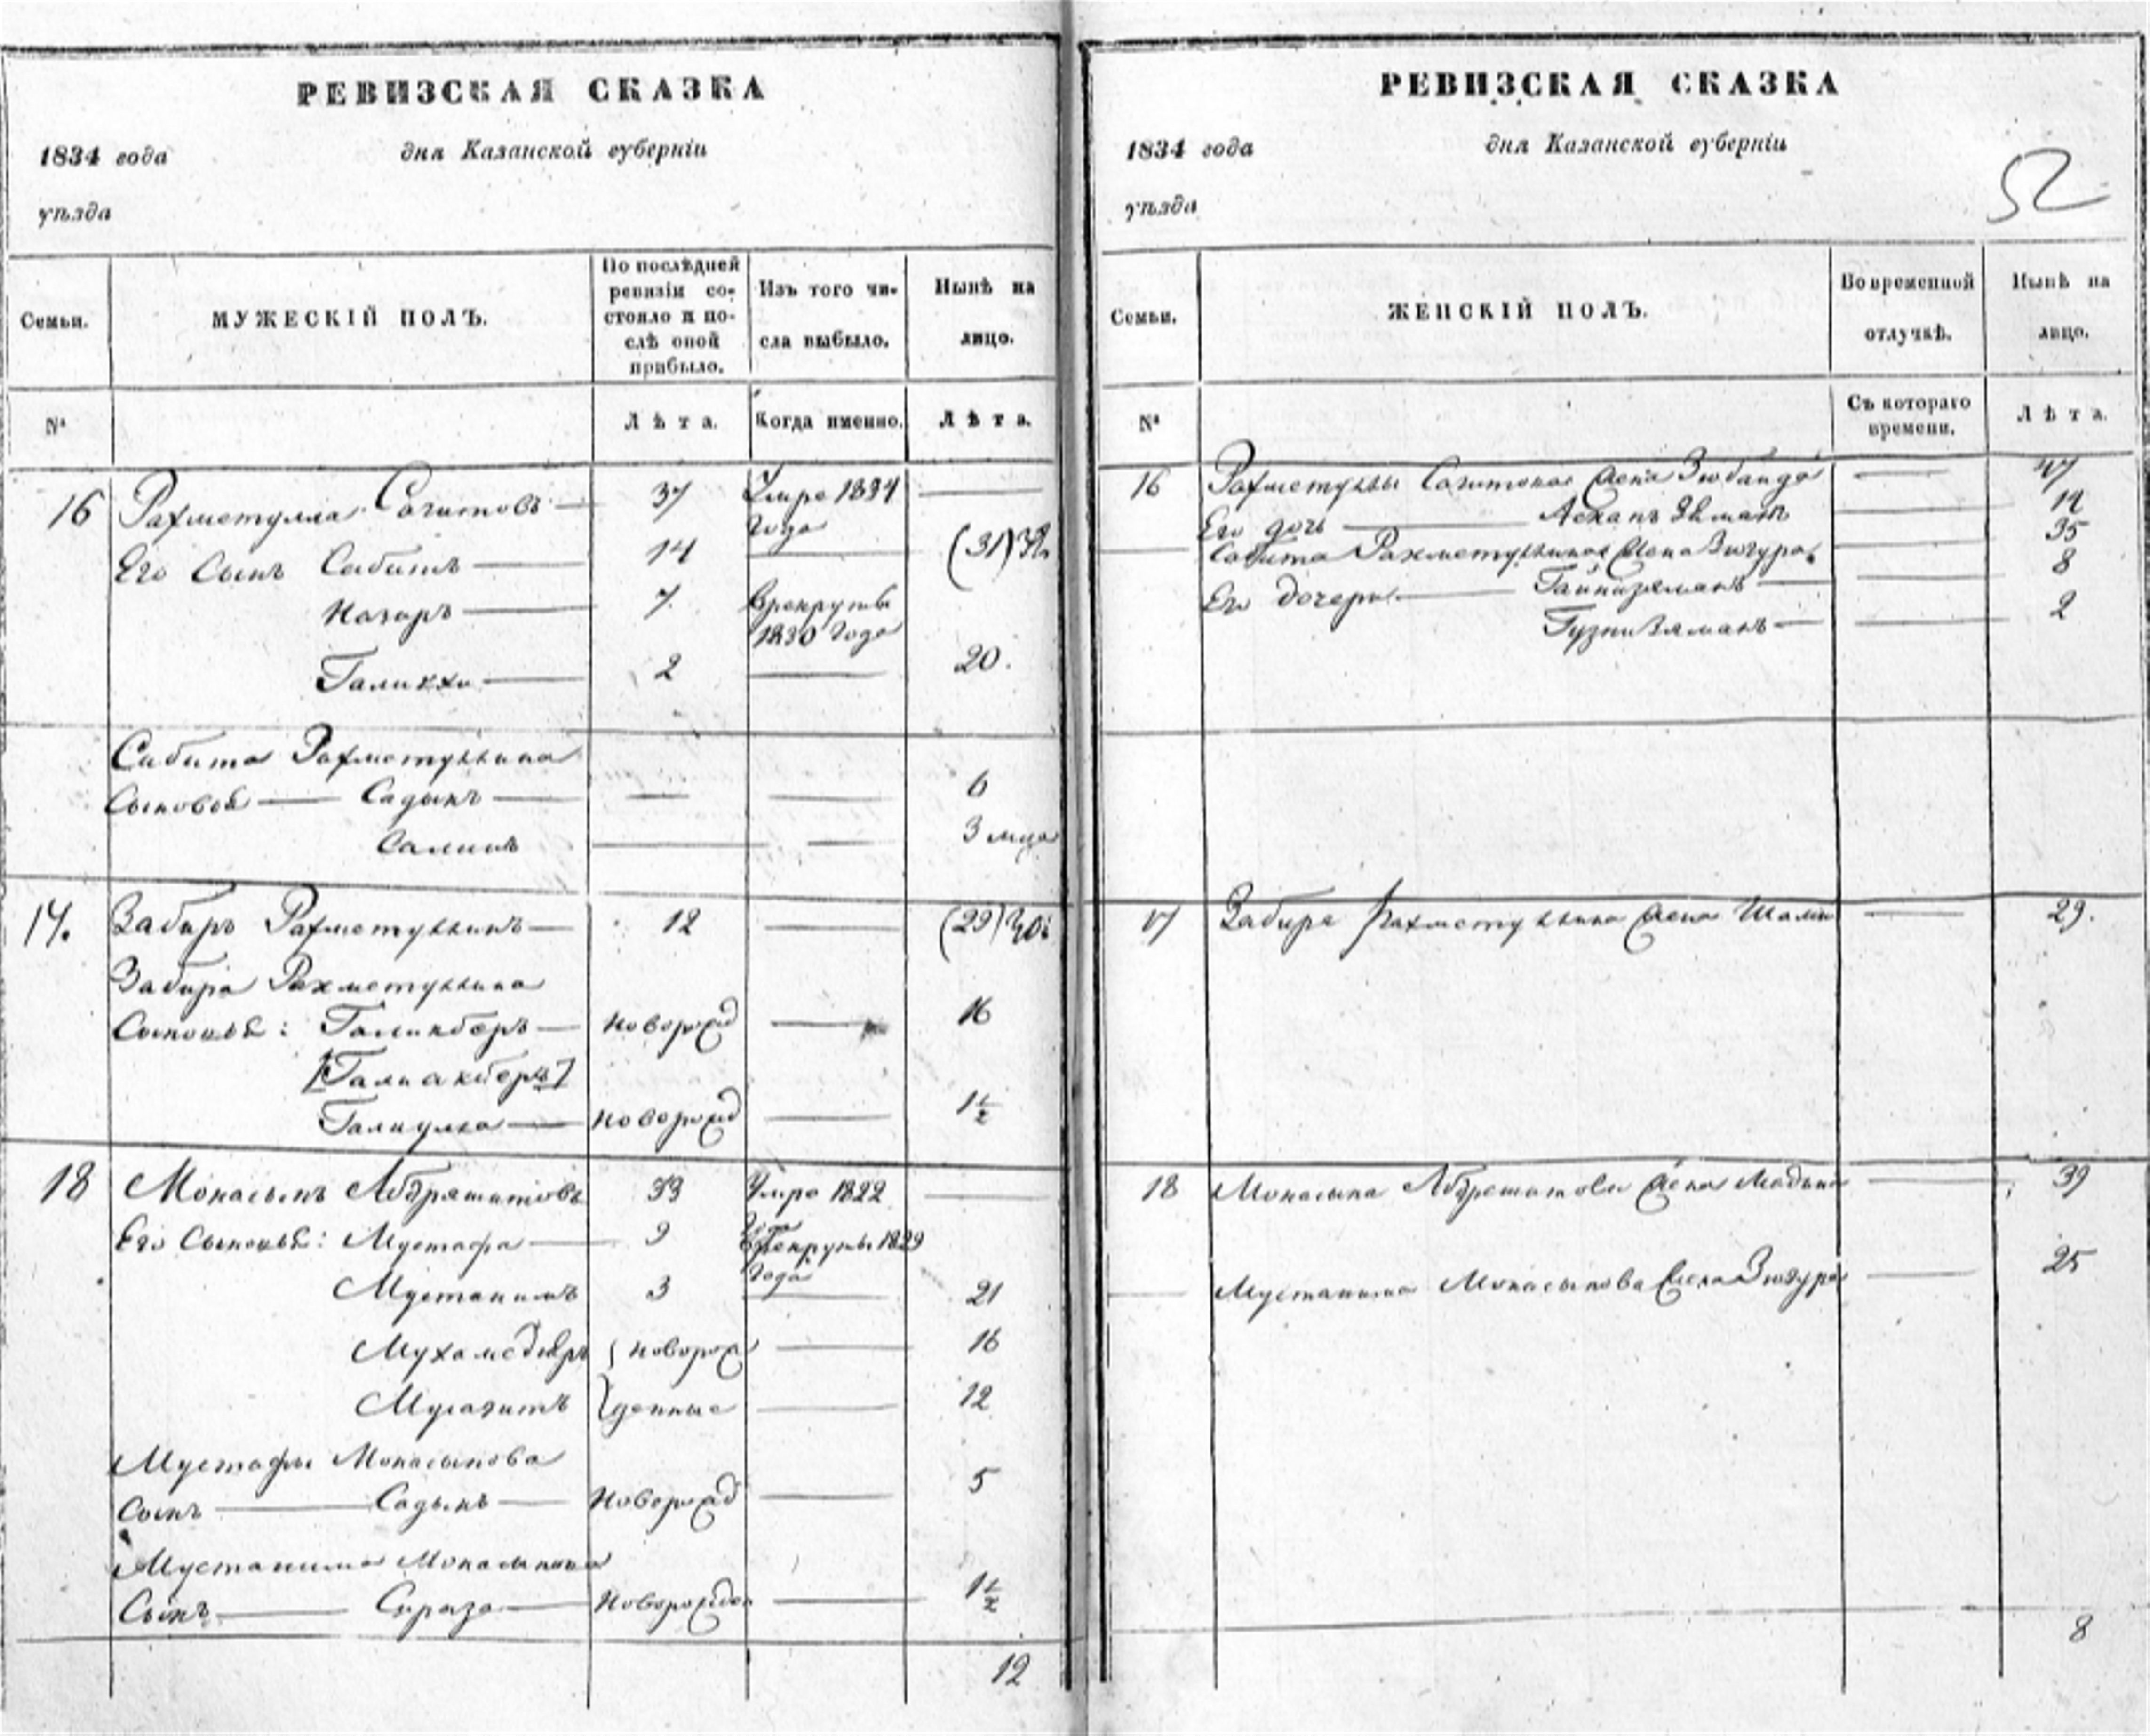 РЕВИЗСКАЯ СКАЗКА
1834 года дня Казанской губерніи
уѣзда
Семьи.
МУЖЕСКІЙ ПОЛЪ.
По послѣдней ревизіи со-
стояло и по-
слѣ оной
прибыло.
Изъ того чи-
сла выбыло.
Нынѣ на
лицо.
№
Лѣта.
Когда именно.
Лѣта.
16 Рахметулла Сагитовъ 37 Умре 1834
года
Его Сынъ Сабитъ 14 (31)
Назаръ 7 Врекруты
1830 года
2 20.
Сабита Рахметуллина
Сыновья Садыкъ 6
Салимъ 3 мца
17. Забиръ Рахметуллинъ 12 (29) 30
Забира Рахметуллина
Сыновья: Галикберъ новорожд 16
[Галиакберъ]
Галиулла новорожд 1½
18 Монасыпъ 33 Умре 1822
года
Его Сыновья: Мустафа 9 Врекруты 1829
года
Мустакимъ 3 21
новорож 16
денные 12
Мустафы Монасыпова
Сынъ Садыкъ Новорожд 5
Мустакима Монасыпова
Сынъ Новорожден 1½
12
РЕВИЗСКАЯ СКАЗКА
1834 года дня Казанской губерніи
уѣзда
52
Семьи.
ЖЕНСКІЙ ПОЛЪ.
Во временной
отлучкѣ.
Нынѣ на
лицо.
№
Съ котораго
времени.
Лѣта.
16 Рахметуллы Сагитова Жена Зюбайда 47
Его дочь 14
Сабита Рахметуллина Жена 35
Его дочери 8
2
17 Забира Рахметуллина Жена 29.
18 Монасыпа Жена 39
Мустакима Монасыпова Жена 25
8